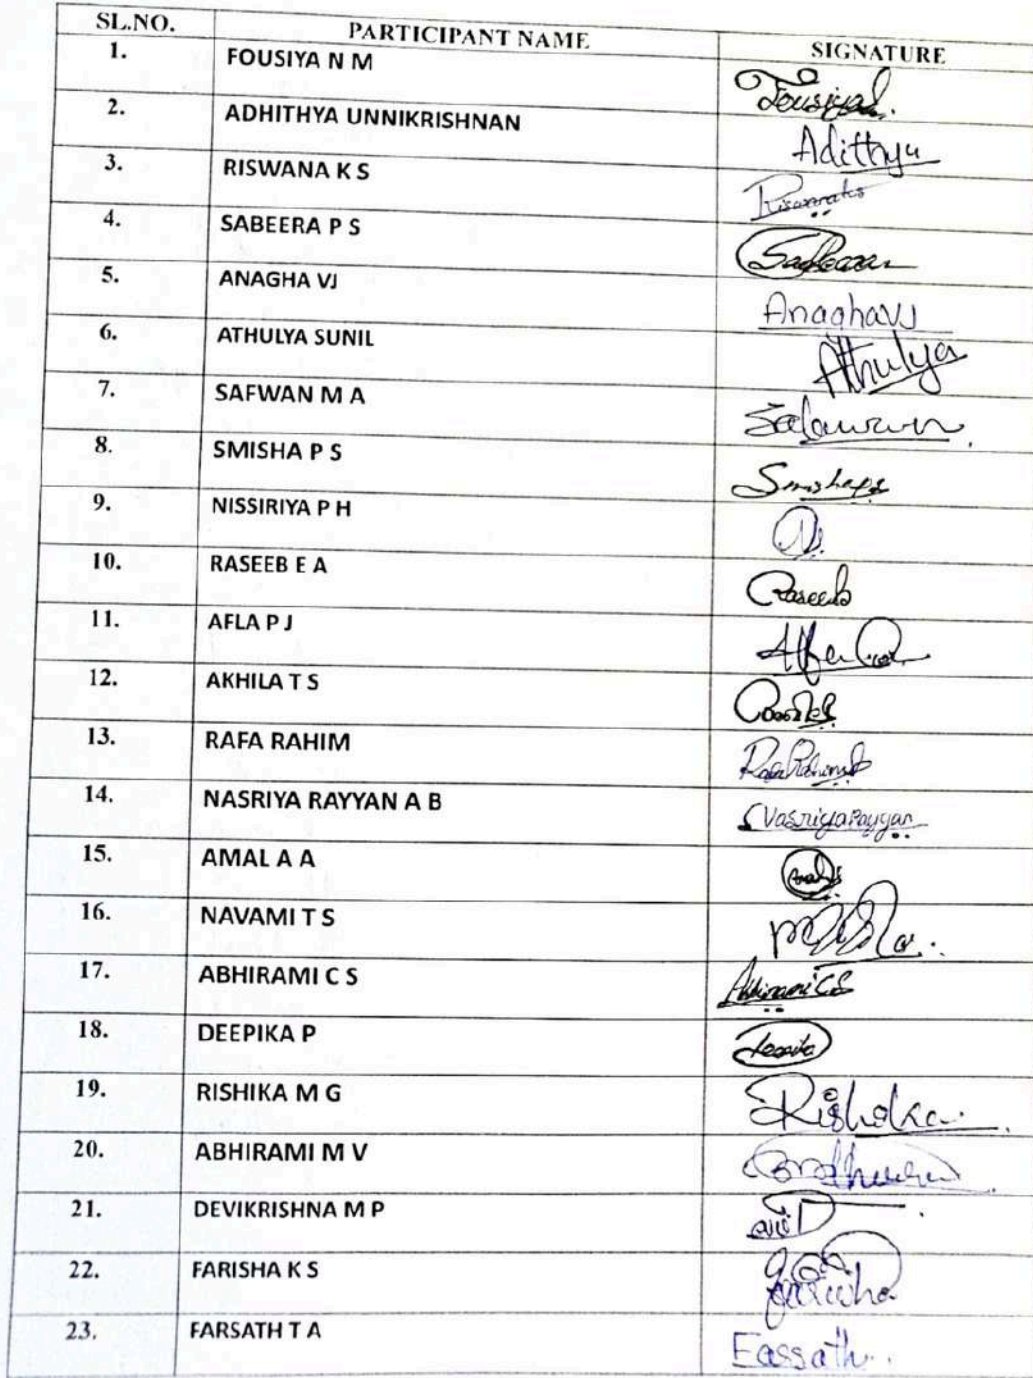 SL.NO. PARTICIPANT NAME SIGNATURE
1. FOUSIYA N M Fousiya
2. ADHITHYA UNNIKRISHNAN Adithya
3. RISWANA K S
4. SABEERA P S
5. ANAGHA VJ Anagha VJ
6. ATHULYA SUNIL Athulya
7. SAFWAN M A
8. SMISHA P S Smisha ps
9. NISSIRIYA P H
10. RASEEB E A Raseeb
11. AFLA P J
12. AKHILA T S
13. RAFA RAHIM Rafa Rahim
14. NASRIYA RAYYAN A B Nasriya Rayyan
15. AMAL A A
16. NAVAMI T S
17. ABHIRAMI C S Abhirami C S
18. DEEPIKA P
19. RISHIKA M G Rishika
20. ABHIRAMI M V
21. DEVIKRISHNA M P
22. FARISHA K S
23. FARSATH T A Fassath